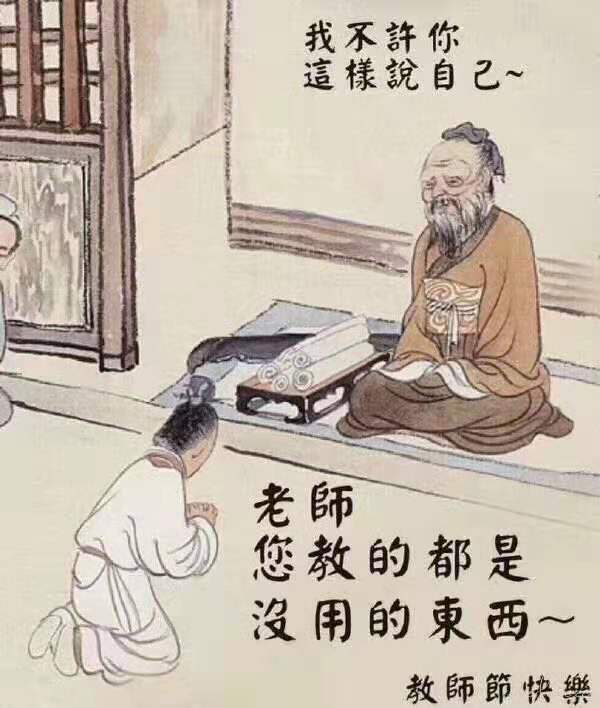 我不許你
這樣說自己~
老師
您教的都是
沒用的東西~
教師節快樂